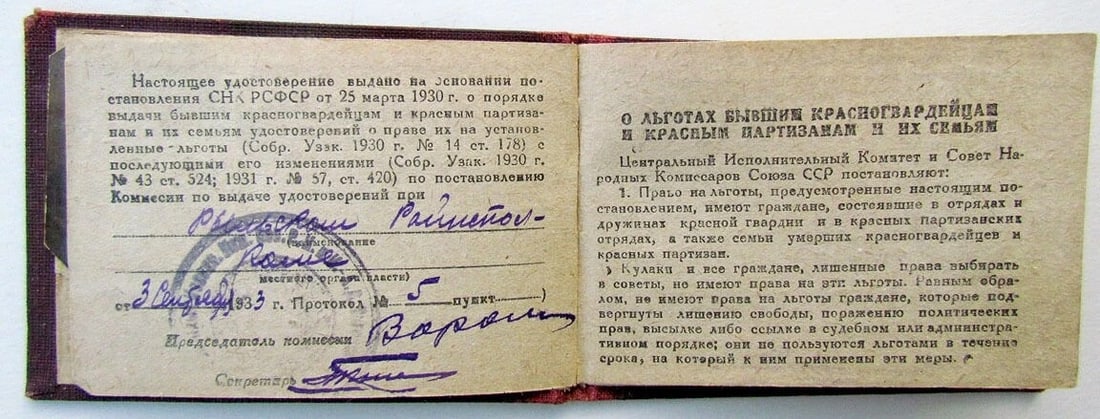 Настоящее удостоверение выдано на основании по-
становления СНК РСФСР от 25 марта 1930 г. о порядке
выдачи бывшим красногвардейцам и красным партиза-
нам и их семьям удостоверений о праве их на установ-
ленные льготы (Собр. Узак. 1930 г. № 14 ст. 178) с
последующими его изменениями (Собр. Узак. 1930 г.
№ 43 ст. 524; 1931 г. № 57, ст. 420) по постановлению
Комиссии по выдаче удостоверений при
Рыльском Райиспол-
(наименование
коме
местного органа власти)
от 3 Сентября 1933 г. Протокол № 5 пункт )
Председатель комиссии
Секретарь
О ЛЬГОТАХ БЫВШИМ КРАСНОГВАРДЕЙЦАМ
И КРАСНЫМ ПАРТИЗАНАМ И ИХ СЕМЬЯМ
Центральный Исполнительный Комитет и Совет На-
родных Комиссаров Союза ССР постановляют:
1. Право на льготы, предусмотренные настоящим по-
становлением, имеют граждане, состоявшие в отрядах и
дружинах красной гвардии и в красных партизанских
отрядах, а также семьи умерших красногвардейцев и
красных партизан.
) Кулаки и все граждане, лишенные права выбирать
в советы, не имеют права на эти льготы. Равным обра-
лом, не имеют права на льготы граждане, которые под-
вергнуты лишению свободы, поражению политических
прав, высылке либо ссылке в судебном или администра-
тивном порядке; они не пользуются льготами в течение
срока, на который к ним применены эти меры.